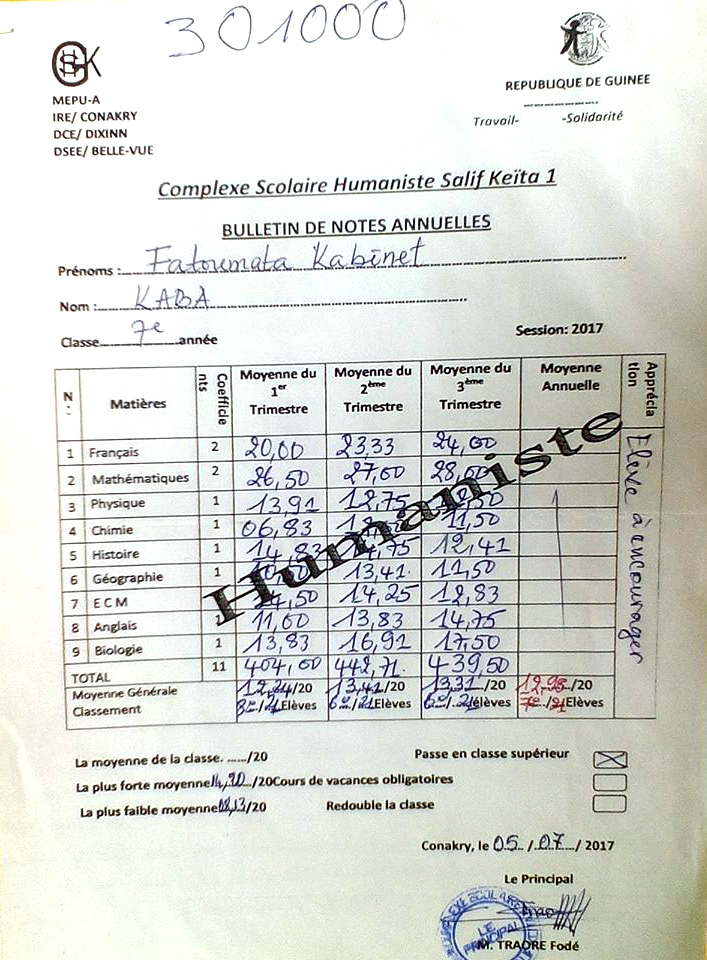 301000
GSHSK
MEPU-A
IRE/ CONAKRY
DCE/ DIXINN
DSEE/ BELLE-VUE
REPUBLIQUE DE GUINEE
Travail- -Solidarité
Complexe Scolaire Humaniste Salif Keïta 1
BULLETIN DE NOTES ANNUELLES
Prénoms : Fatoumata Kabinet
Nom : KABA
Classe 7e année
Session: 2017
N: Matières Coefficients Moyenne du 1er Trimestre Moyenne du 2ème Trimestre Moyenne du 3ème Trimestre Moyenne Annuelle Appréciation
1 Français 2 20,00 23,33 24,00
2 Mathématiques 2 26,50 27,00 28,00
3 Physique 1 13,91 12,75
4 Chimie 1 06,83 11,50
5 Histoire 1 14,83 12,41
6 Géographie 1 13,41 11,50
7 E C M 14,25 12,83
8 Anglais 1 11,00 13,83 14,75
9 Biologie 1 13,83 16,91 17,50
TOTAL 11 404,00 442,71 439,50
Moyenne Générale 12,24/20 13,41/20 13,31/20 12,98/20
Classement 8e/21Elèves 6e/21Elèves 6e/21élèves 7e/21Elèves
Elève à encourager
Humaniste
La moyenne de la classe. ....../20
Passe en classe supérieur
La plus forte moyenne 14,90/20
Cours de vacances obligatoires
La plus faible moyenne 08,13/20
Redouble la classe
Conakry, le 05/07/2017
Le Principal
LE PRINCIPAL
M. TRAORE Fodé